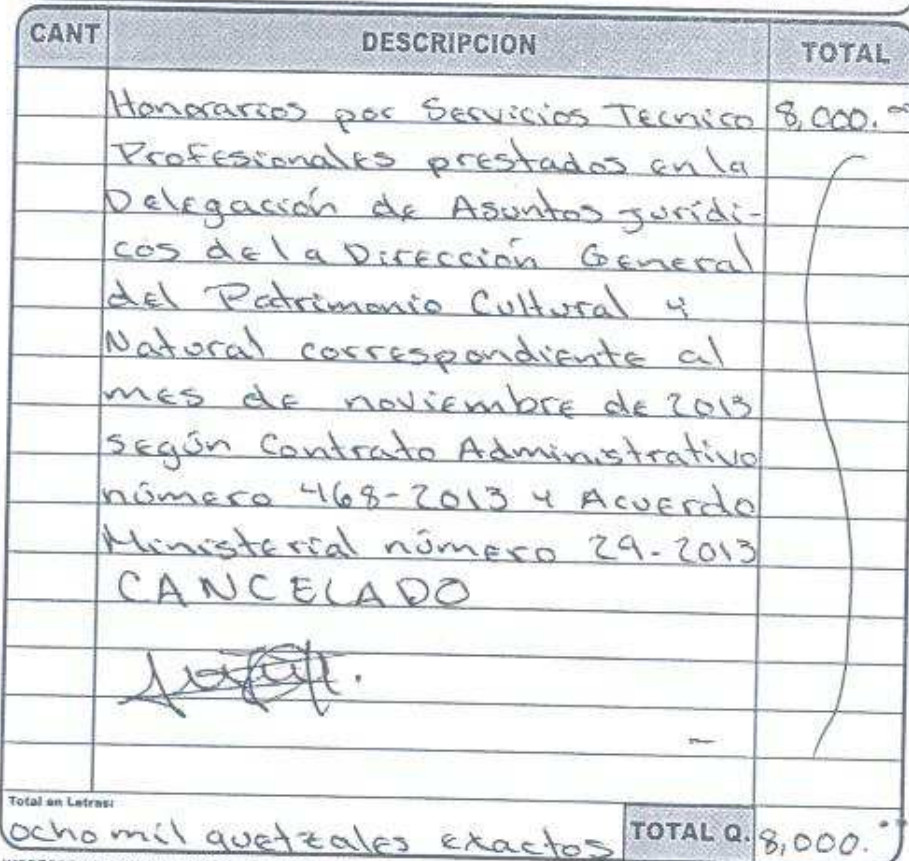 CANT DESCRIPCION TOTAL
Honorarios por Servicios Tecnico 8,000.⁰⁰
Profesionales prestados en la
Delegación de Asuntos jurídi-
cos de la Dirección General
del Patrimonio Cultural y
Natural correspondiente al
mes de noviembre de 2013
según Contrato Administrativo
número 468-2013 y Acuerdo
Ministerial número 29-2013
CANCELADO
Total en Letras:
ocho mil quetzales exactos TOTAL Q. 8,000.⁰⁰